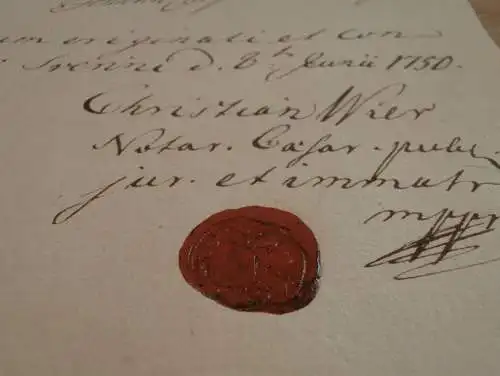 originali et con
d. 8t Junii 1750.
Christian Wier
Notar. Cæsar. publ.
jur. et immatr
mppr